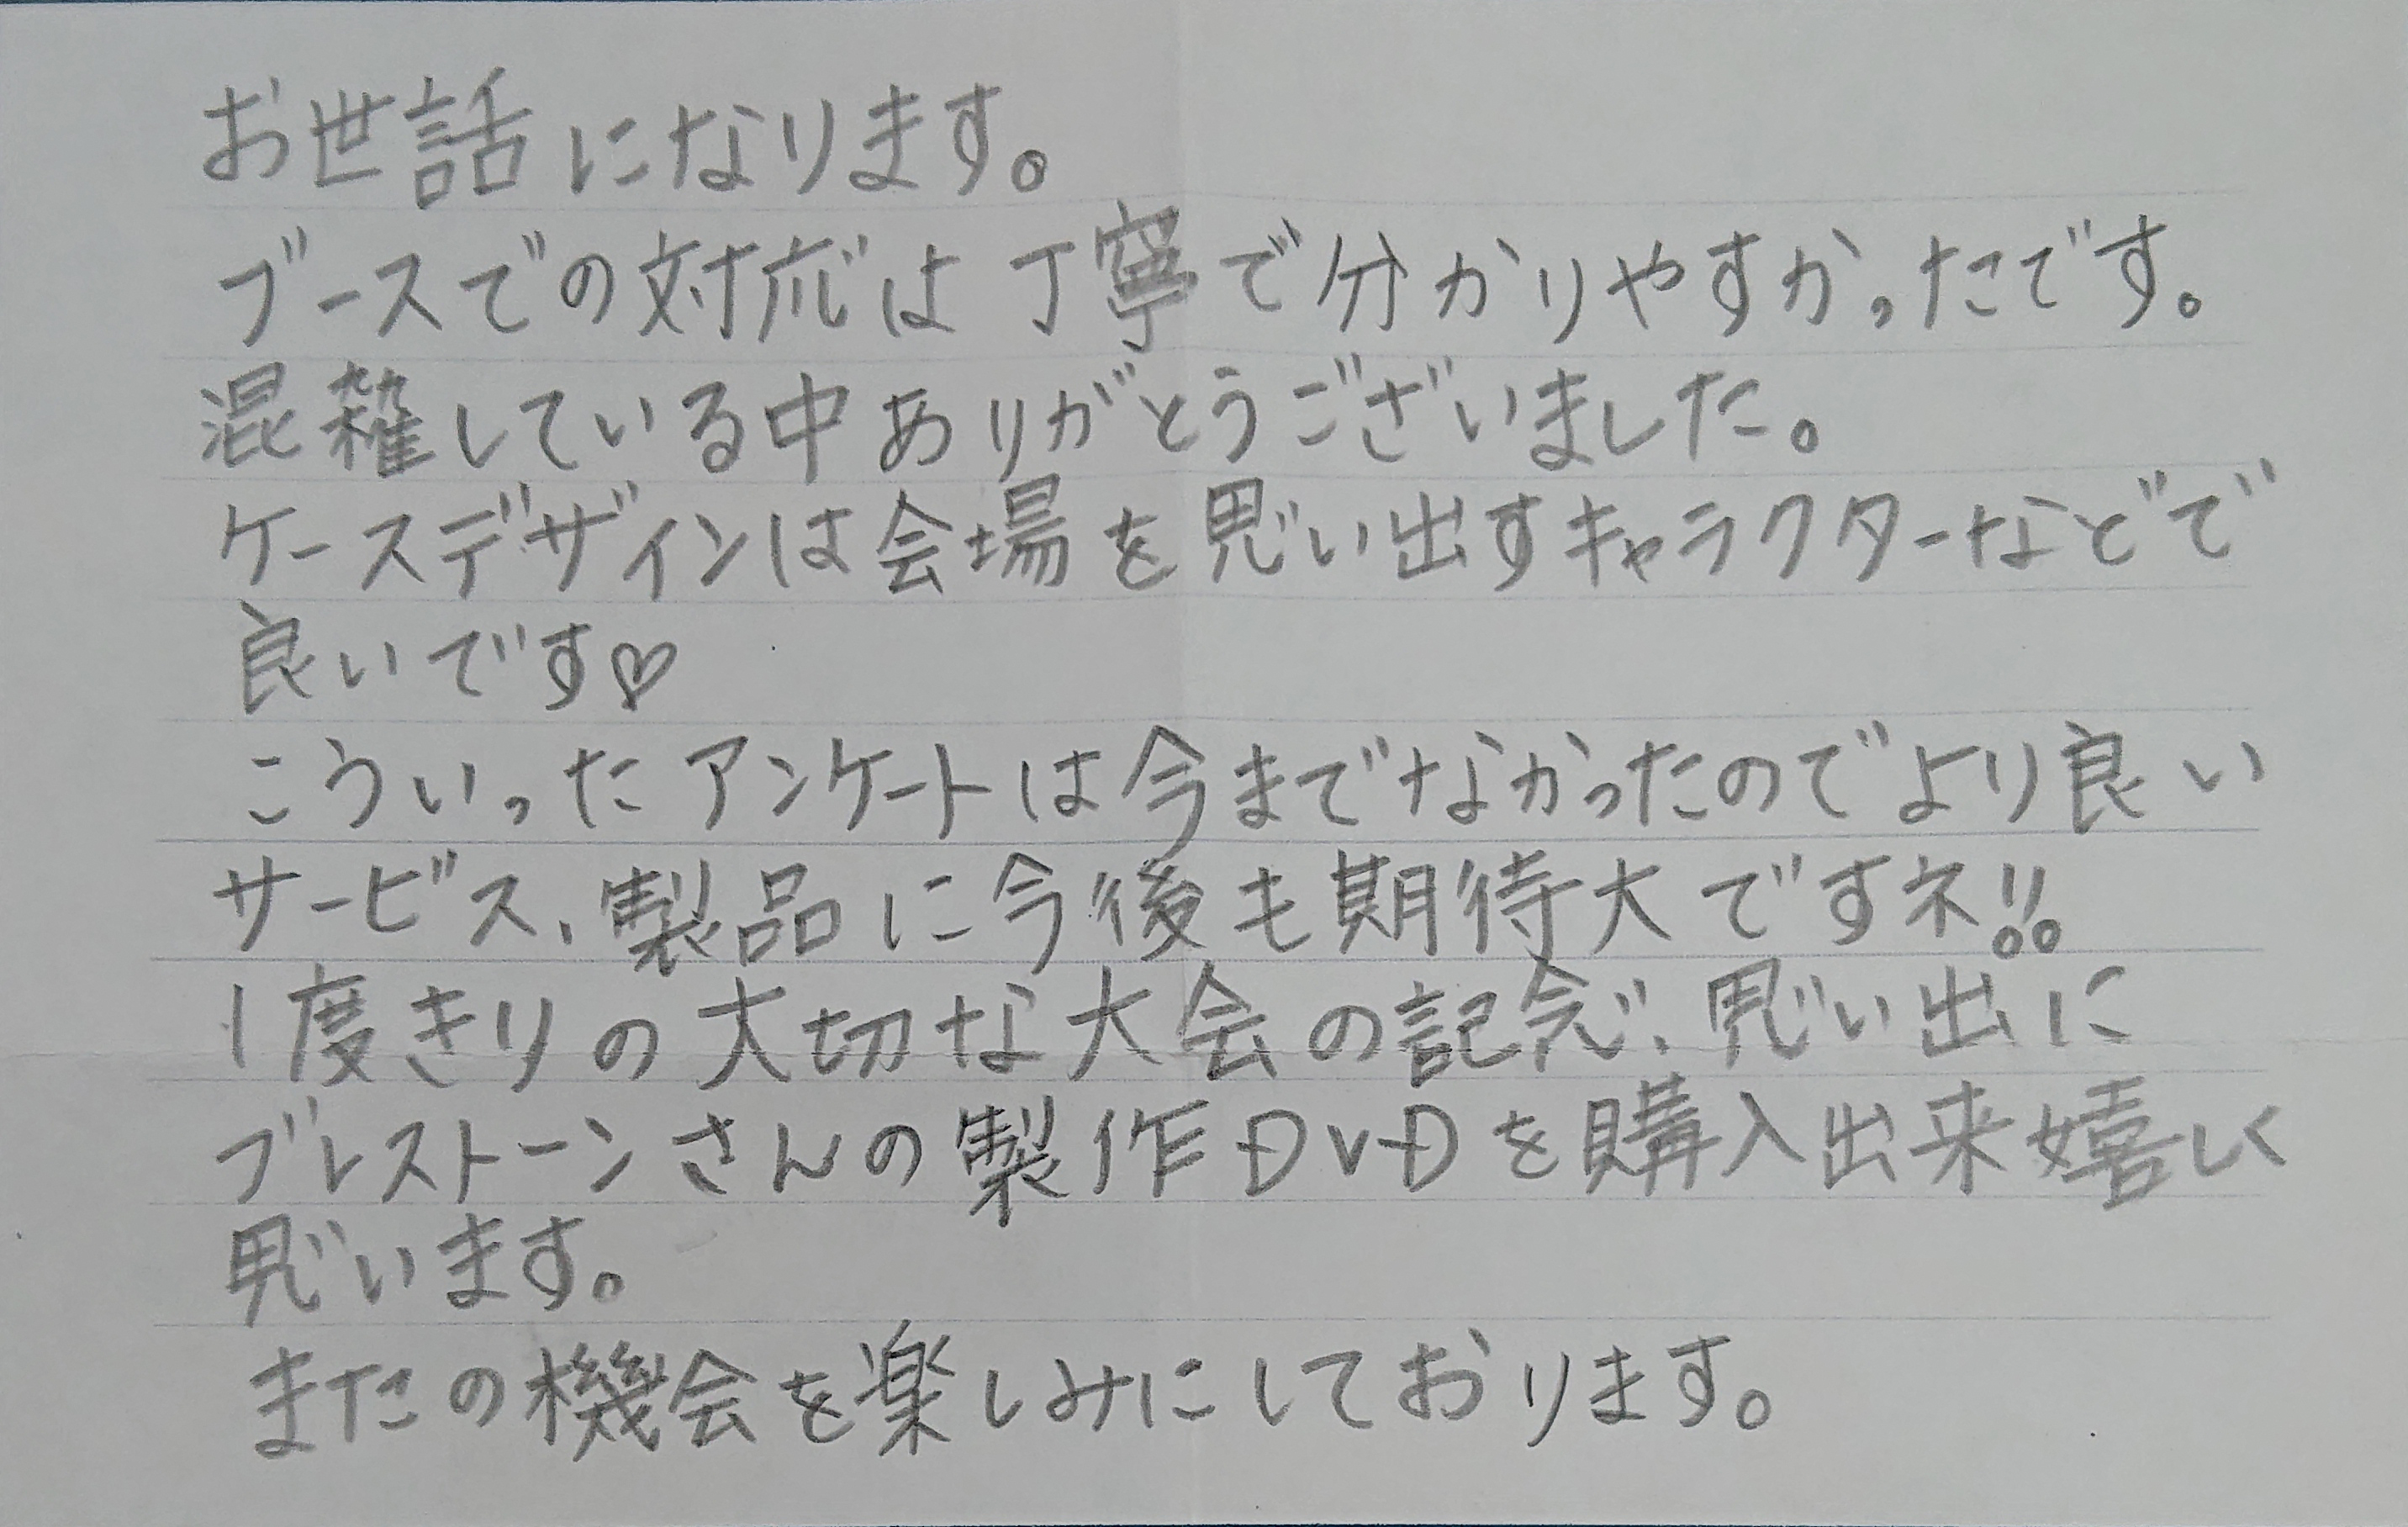 お世話になります。
ブースでの対応は丁寧で分かりやすかったです。
混雑している中ありがとうございました。
ケースデザインは会場を思い出すキャラクターなどで
良いです♡
こういったアンケートは今までなかったのでより良い
サービス、製品に今後も期待大ですネ!!
1度きりの大切な大会の記念、思い出に
ブレストーンさんの製作DVDを購入出来嬉しく
思います。
またの機会を楽しみにしております。